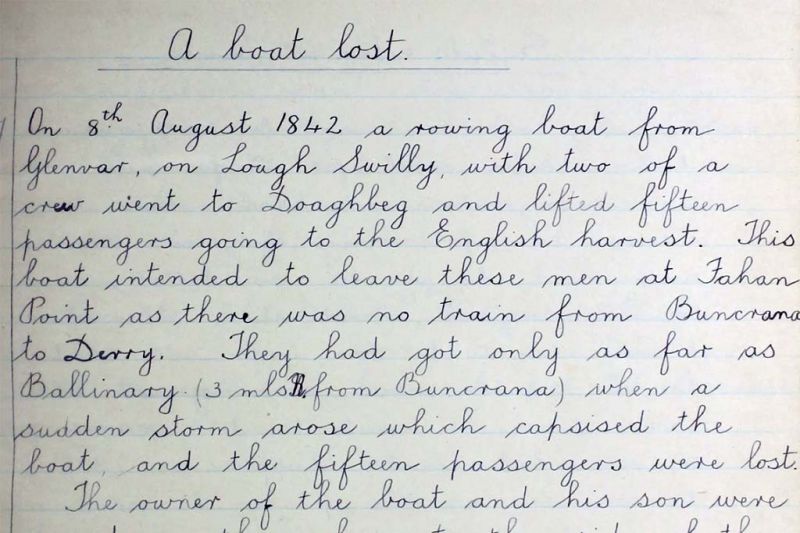 A boat lost.
On 8th August 1842 a rowing boat from
Glenvar, on Lough Swilly, with two of a
crew went to Doaghbeg and lifted fifteen
passengers going to the English harvest. This
boat intended to leave these men at Fahan
Point as there was no train from Buncrana
to Derry. They had got only as far as
Ballinary (3 mls N. from Buncrana) when a
sudden storm arose which capsised the
boat, and the fifteen passengers were lost.
The owner of the boat and his son were